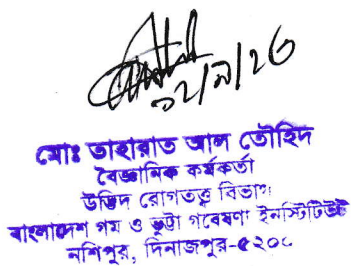 ১২/৯/২৩
মোঃ তাহারাত আল তৌহিদ
বৈজ্ঞানিক কর্মকর্তা
উদ্ভিদ রোগতত্ত্ব বিভাগ
বাংলাদেশ গম ও ভুট্টা গবেষণা ইনস্টিটিউট
নশিপুর, দিনাজপুর-৫২০০